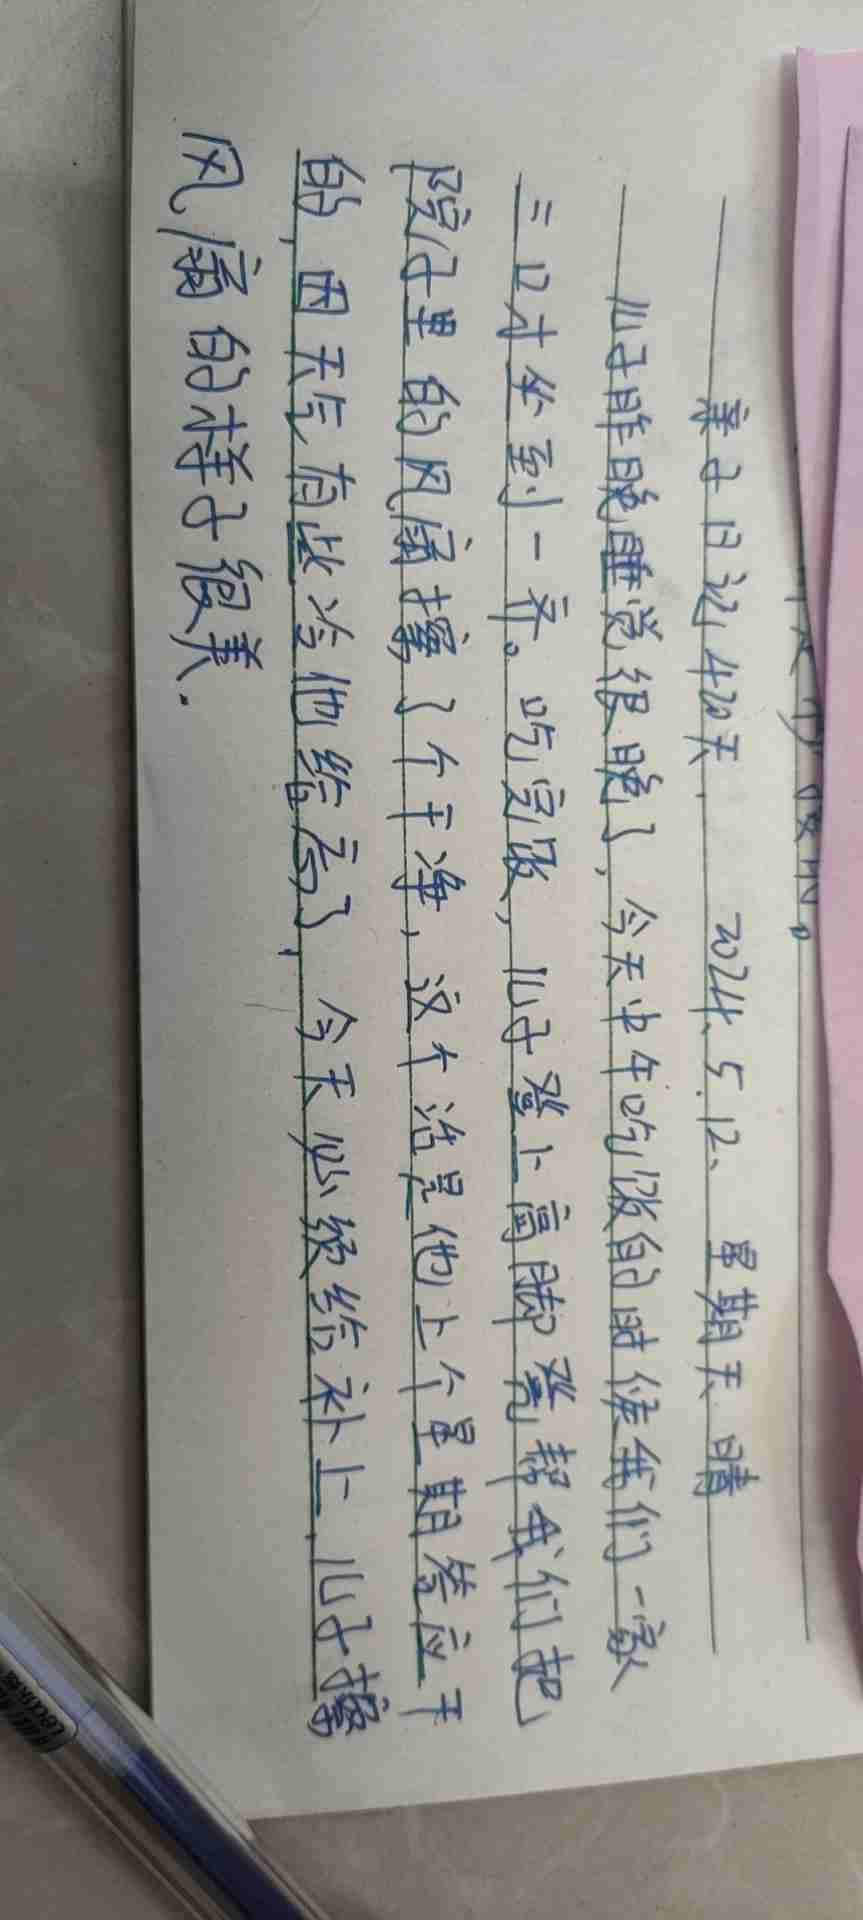 亲子日记420天. 2024.5.12、星期天 晴
儿子昨晚睡觉很晚了,今天中午吃饭的时候我们一家
三口才坐到一齐。吃完饭,儿子登上高脚凳帮我们把
院子里的风扇擦了个干净,这个活是他上个星期答应干
的,因天气有些冷他给忘了,今天必须给补上,儿子擦
风扇的样子很美.